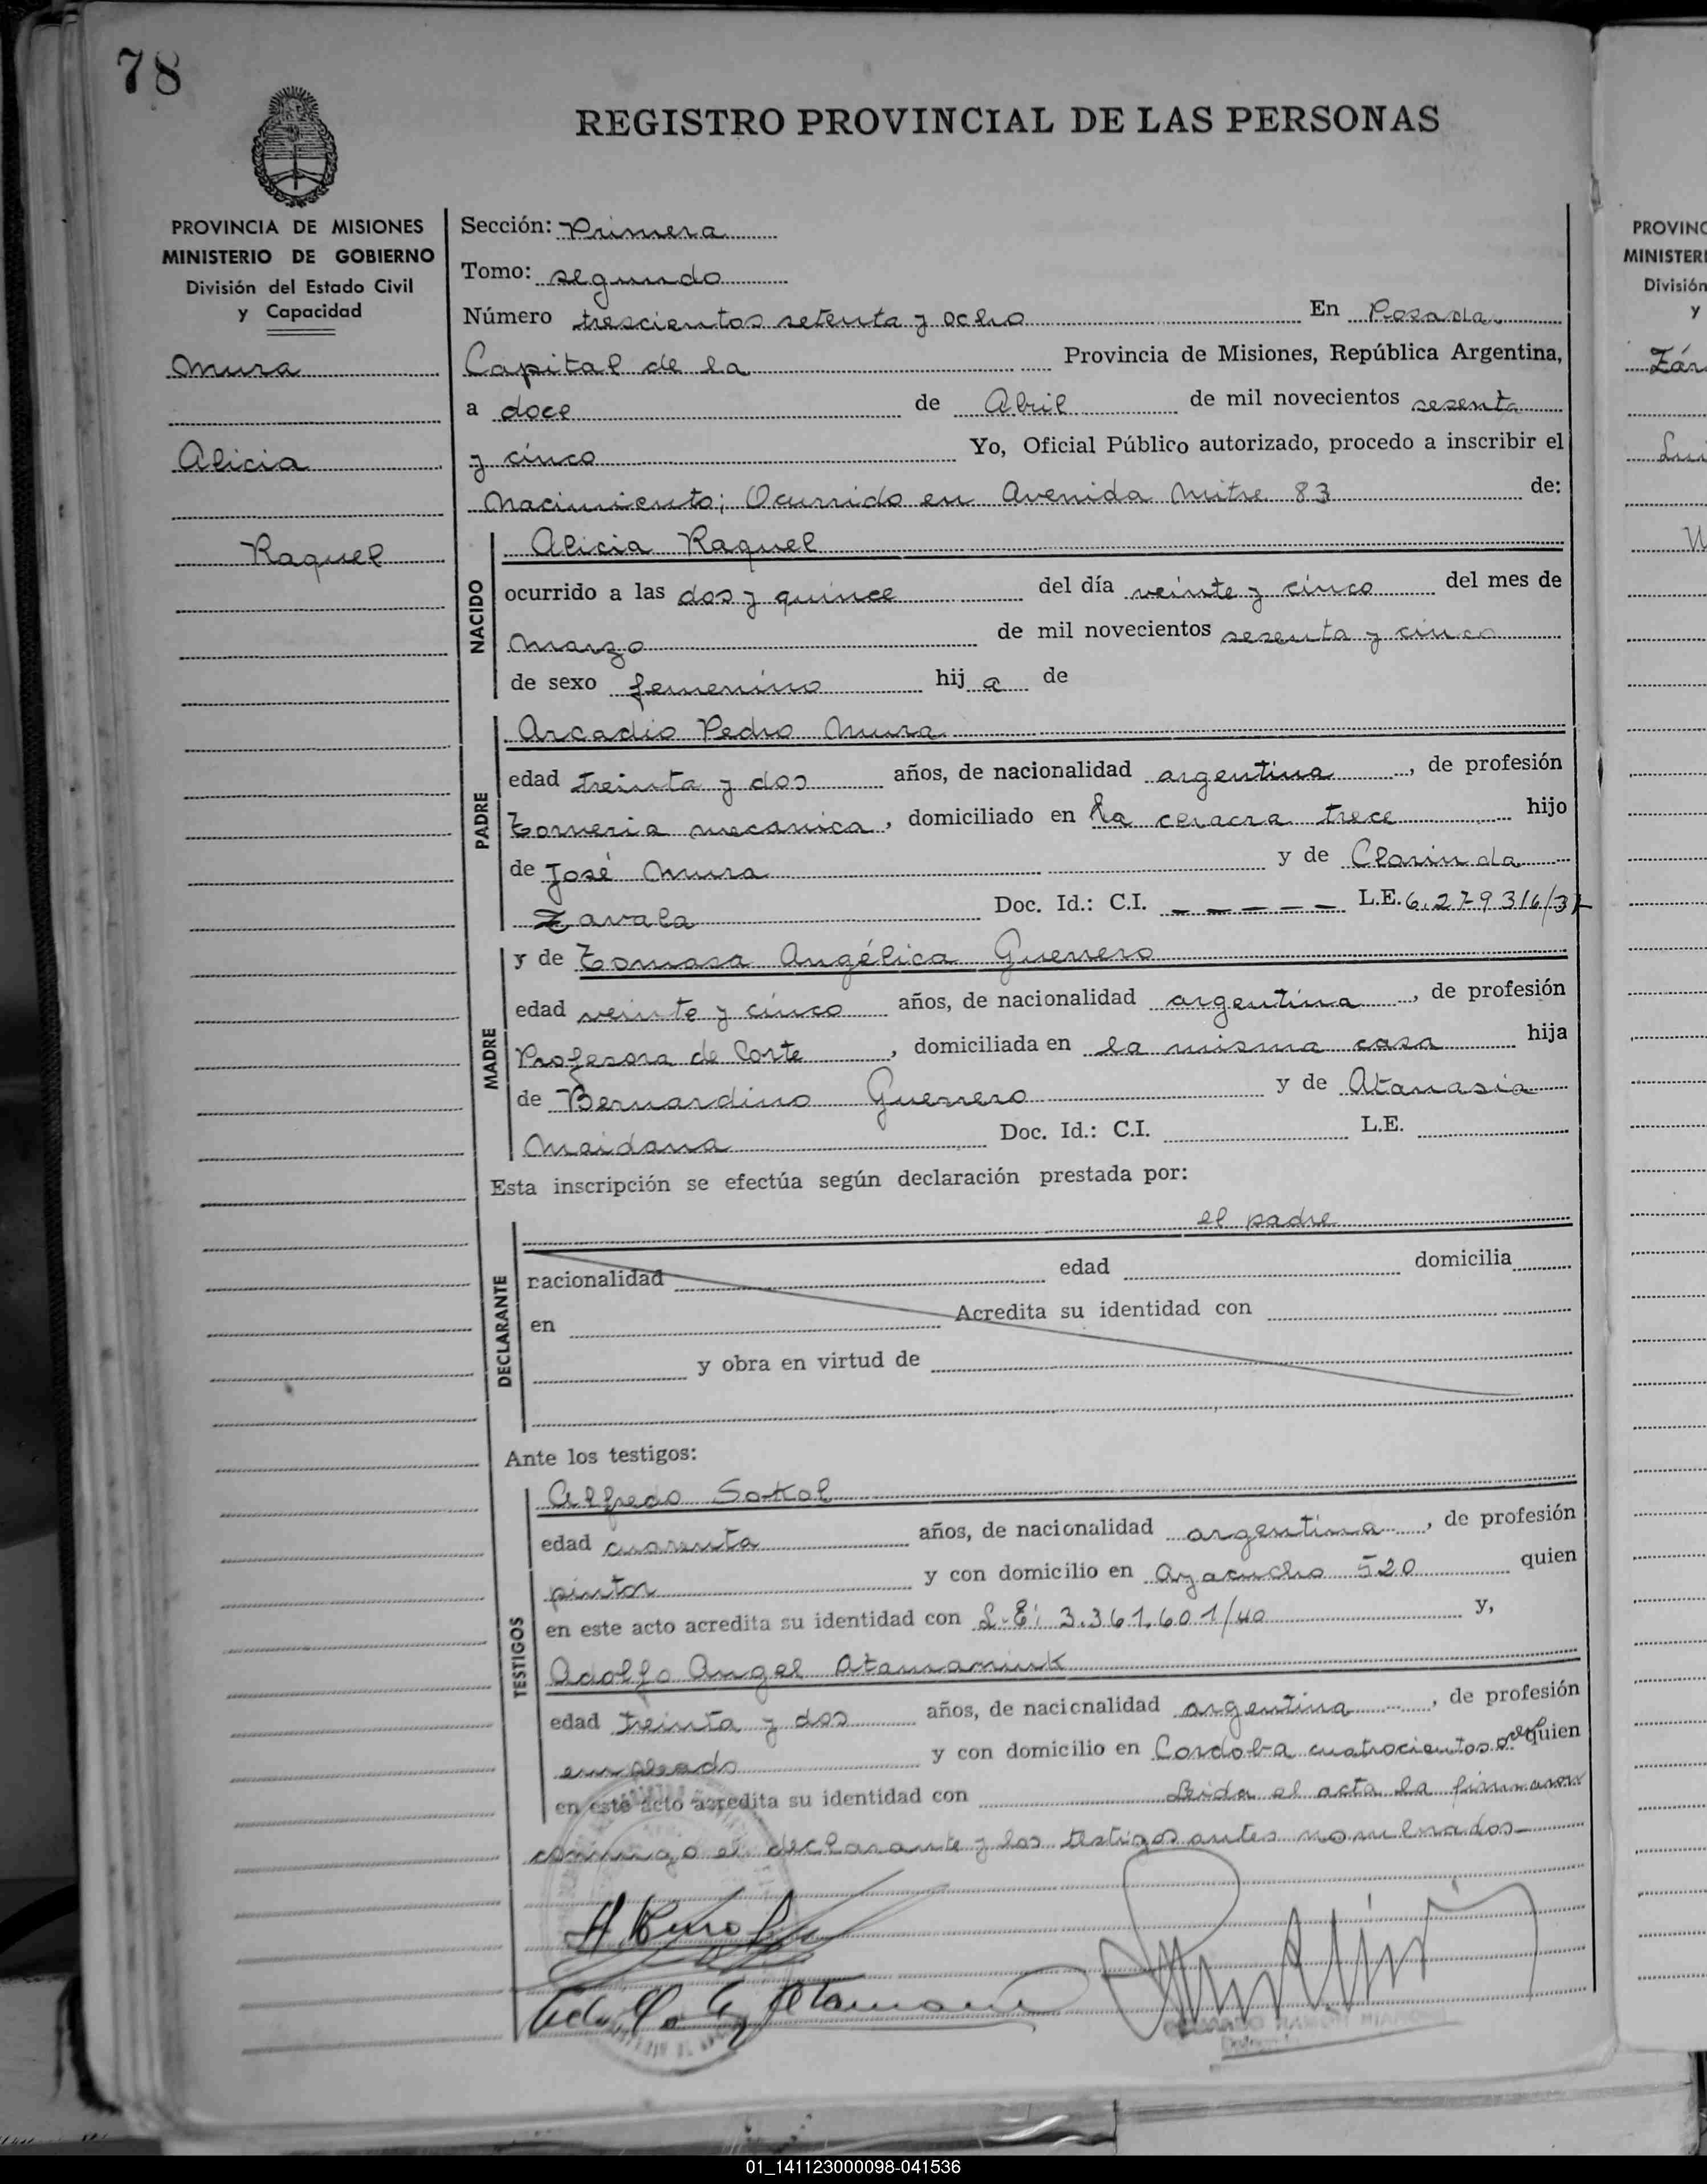 78
REGISTRO PROVINCIAL DE LAS PERSONAS
PROVINCIA DE MISIONES
MINISTERIO DE GOBIERNO
División del Estado Civil
y Capacidad
Mura
Alicia
Raquel
Sección: Primera
Tomo: segundo
Número trescientos setenta y ocho En Posadas
Capital de la Provincia de Misiones, República Argentina,
a doce de Abril de mil novecientos sesenta
y cinco Yo, Oficial Público autorizado, procedo a inscribir el
Nacimiento; Ocurrido en Avenida Mitre 83 de:
NACIDO
Alicia Raquel
ocurrido a las dos y quince del día veinte y cinco del mes de
Marzo de mil novecientos sesenta y cinco
de sexo femenino hij a de
PADRE
Arcadio Pedro Mura
edad treinta y dos años, de nacionalidad argentina, de profesión
Torneria mecanica, domiciliado en la chacra trece hijo
de José Mura y de Clarinda
Zavala Doc. Id.: C.I. – – – – – – L.E. 6.279316/37
MADRE
y de Tomasa Angélica Guerrero
edad veinte y cinco años, de nacionalidad argentina, de profesión
Profesora de Corte, domiciliada en la misma casa hija
de Bernardino Guerrero y de Atanasia
Maidana Doc. Id.: C.I. L.E.
Esta inscripción se efectúa según declaración prestada por:
DECLARANTE
el padre
nacionalidad edad domicilia
en Acredita su identidad con
y obra en virtud de
Ante los testigos:
TESTIGOS
Alfredo Sokol
edad cuarenta años, de nacionalidad argentina, de profesión
pintor y con domicilio en Ayacucho 520 quien
en este acto acredita su identidad con L.E: 3.361.601/40 y,
Adolfo Angel Atamaniuk
edad treinta y dos años, de nacionalidad argentina, de profesión
empleado y con domicilio en Cordoba cuatrocientos quien
en este acto acredita su identidad con Leida el acta la firmaron
conmigo el declarante y los testigos antes nombrados–
PROVINC
MINISTERI
División
y
Zár
01_141123000098-041536